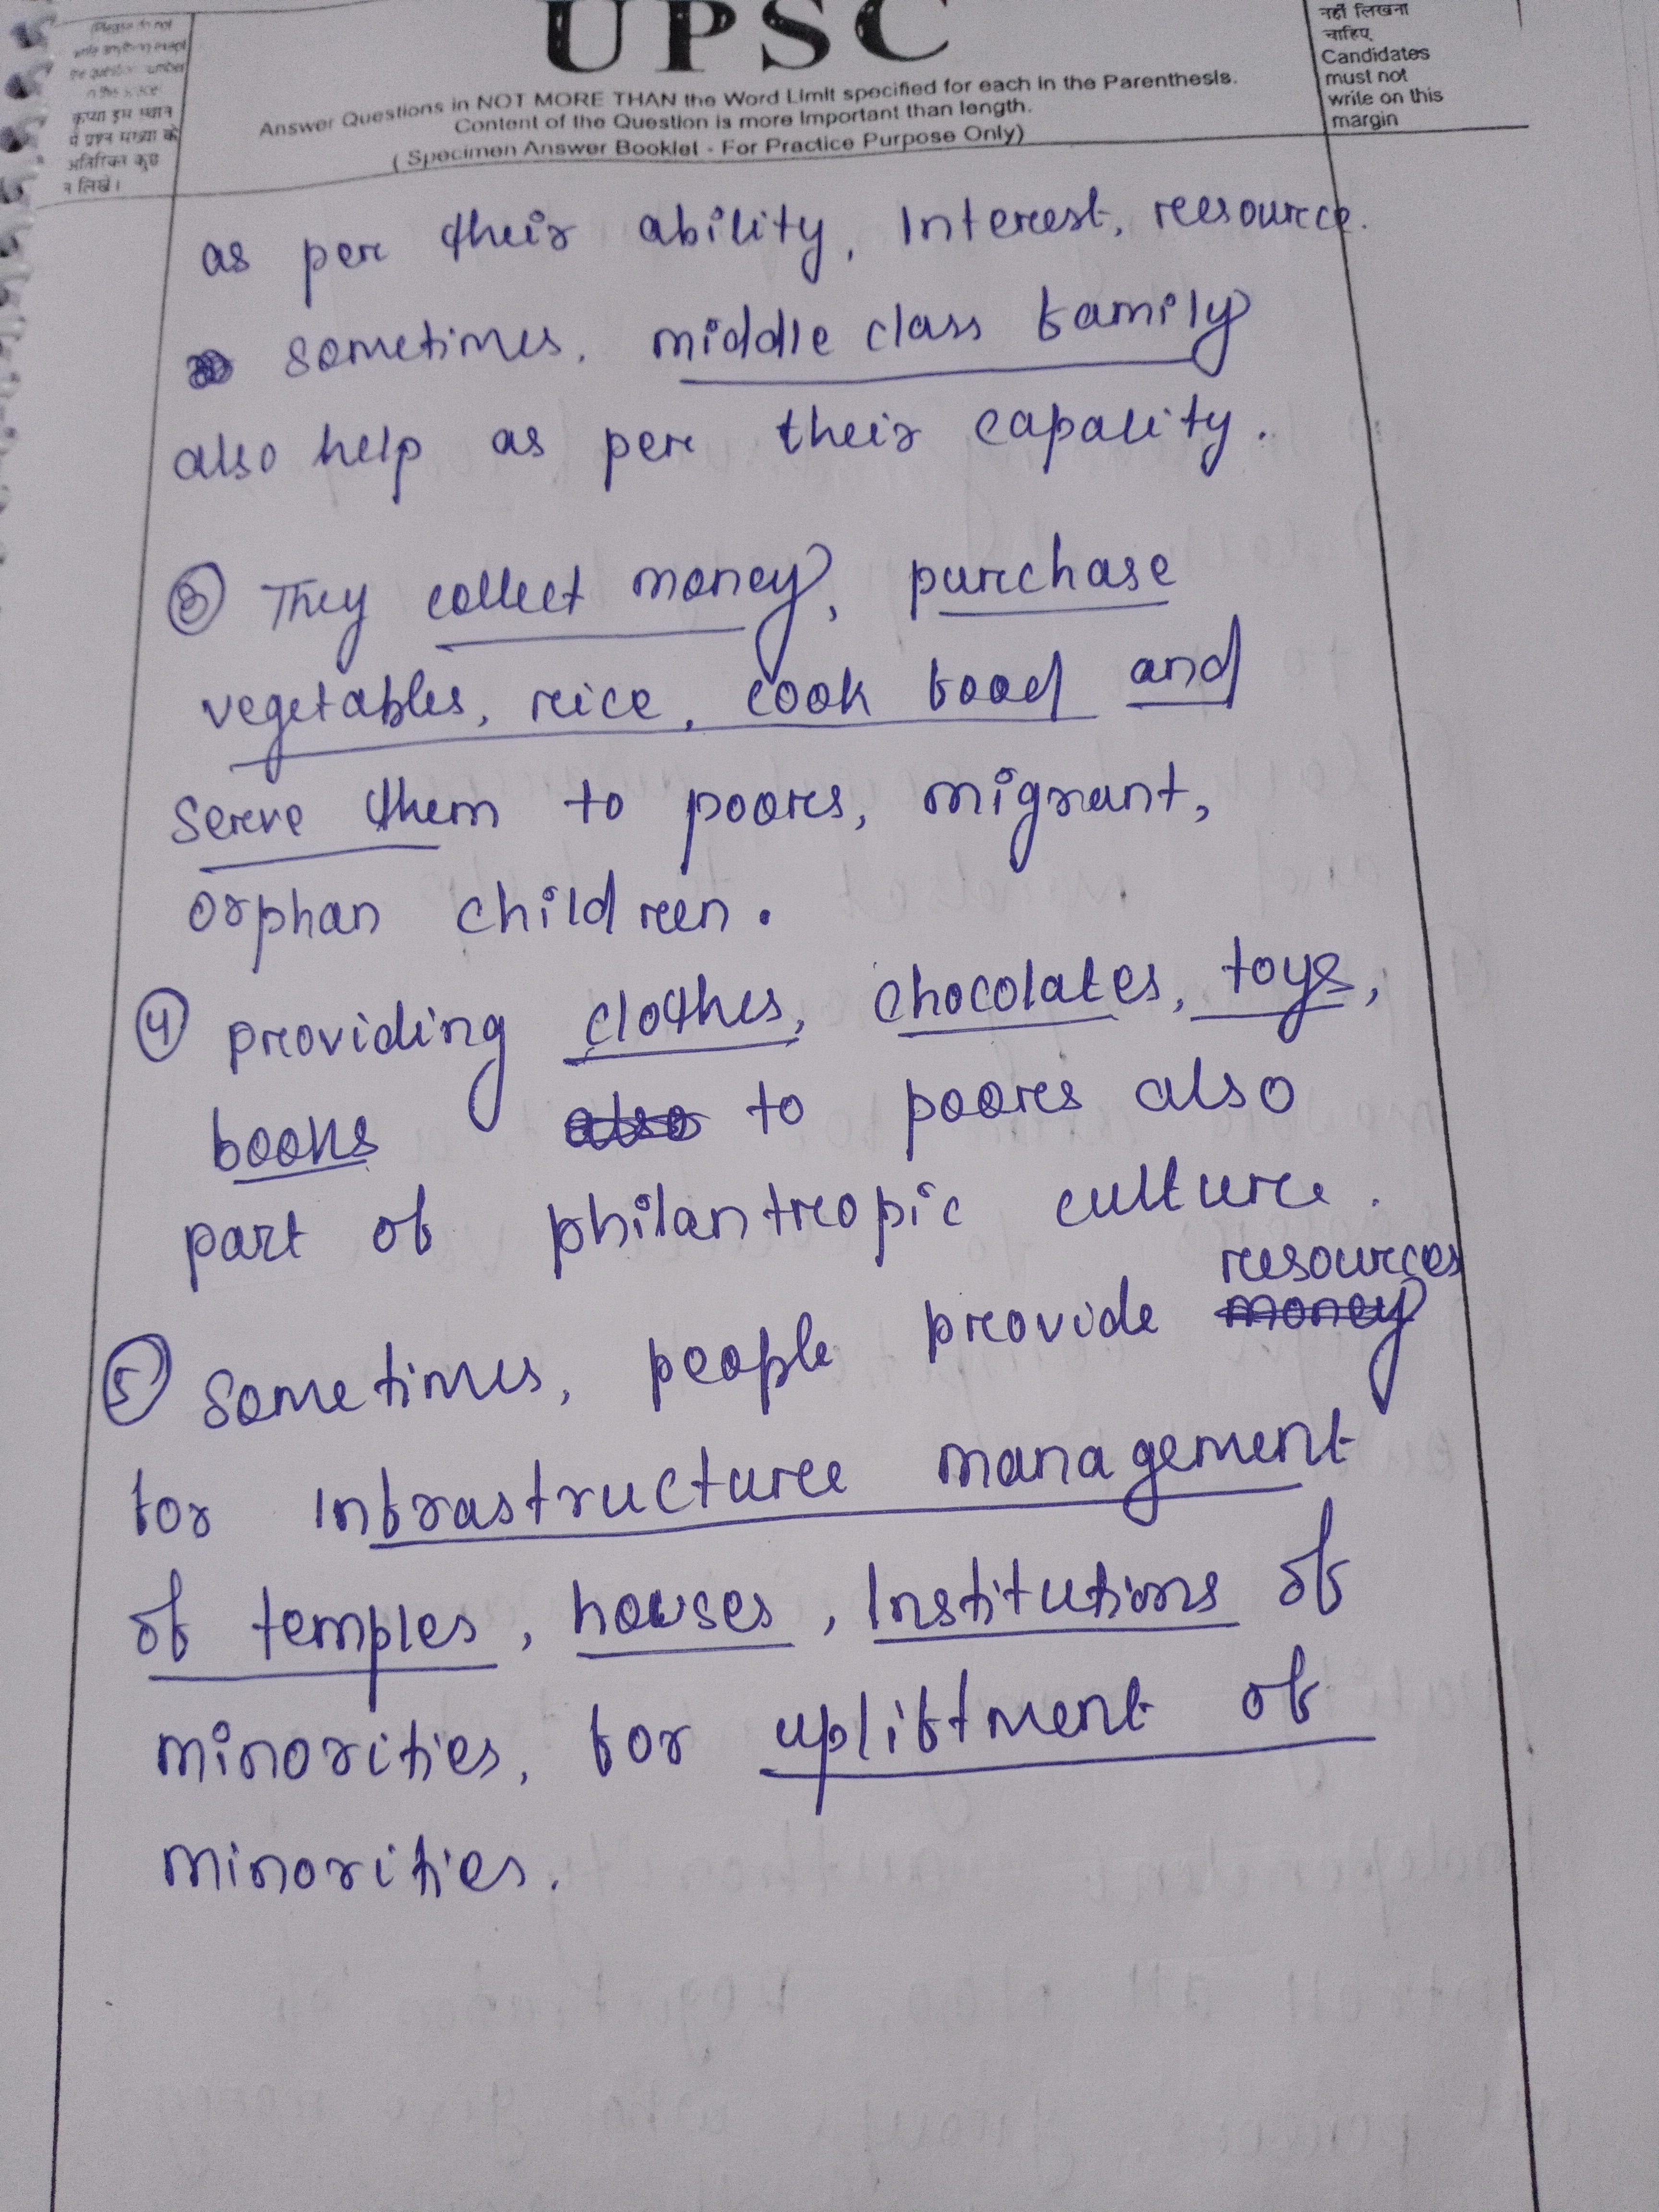 (Please do not
write anything except
the question number
in this space)
कृपया इस स्थान
में प्रश्न संख्या के
अतिरिक्त कुछ
न लिखें।
UPSC
Answer Questions in NOT MORE THAN the Word Limit specified for each in the Parenthesis.
Content of the Question is more Important than length.
( Specimen Answer Booklet - For Practice Purpose Only)
नहीं लिखना
चाहिए
Candidates
must not
write on this
margin
as per their ability, Interest, resource.
sometimes, middle class family
also help as per their capality.
③ They collect money, purchase
vegetables, rice, cook food and
serve them to poors, migrant,
orphan children.
④ providing clothes, chocolates, toys,
books also to poors also
part of philantropic culture.
resources
⑤ Sometimes, people provide money
for Infrastructure management
of temples, houses, Institutions of
minorities, for upliftment of
minorities.